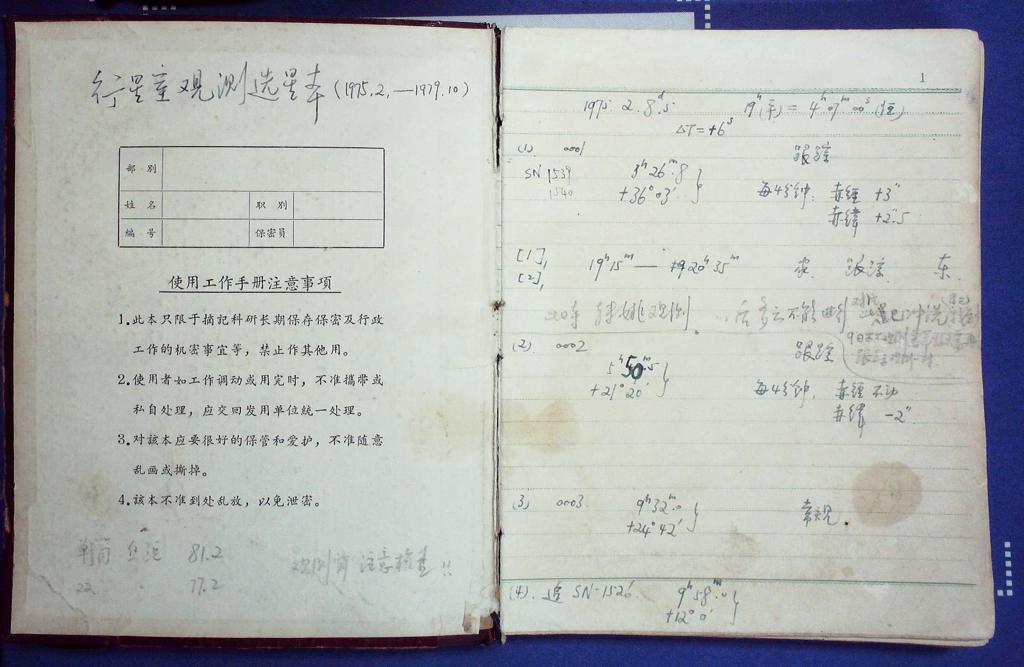 行星室观测选星本(1975.2.—1979.10)
部別
姓名 职別
編号 保密員
使用工作手册注意事項
1.此本只限于摘記科研长期保存保密及行政
工作的机密事宜等，禁止作其他用。
2.使用者如工作调动或用完时，不准攜带或
私自处理，应交回发用单位統一处理。
3.对該本应要很好的保管和爱护，不准随意
乱画或撕掉。
4.該本不准到处乱放，以免泄密。
81.2
观测前注意检查!!
22 77.2
1
1975 2. 8.ᵈ5 19ʰ(平) = 4ʰ07ᵐ00ˢ(恒)
ΔT=+6ˢ
(1) 0001 跟踪
SN 1539 3ʰ26ᵐ.8
1540 +36°03′ 每4分钟: 赤经 +3"
赤緯 +2".5
[1],
[2], 19ʰ15ᵐ — 20ʰ35ᵐ 跟踪 东
(2) 0002 跟踪
5ʰ50ᵐ.5
+21°20′ 每4分钟, 赤经不动
赤緯 -2"
(3) 0003 9ʰ32ᵐ.0
+24°42′ 常规.
(4). 追 SN-1526 9ʰ58ᵐ.0
+12°0′